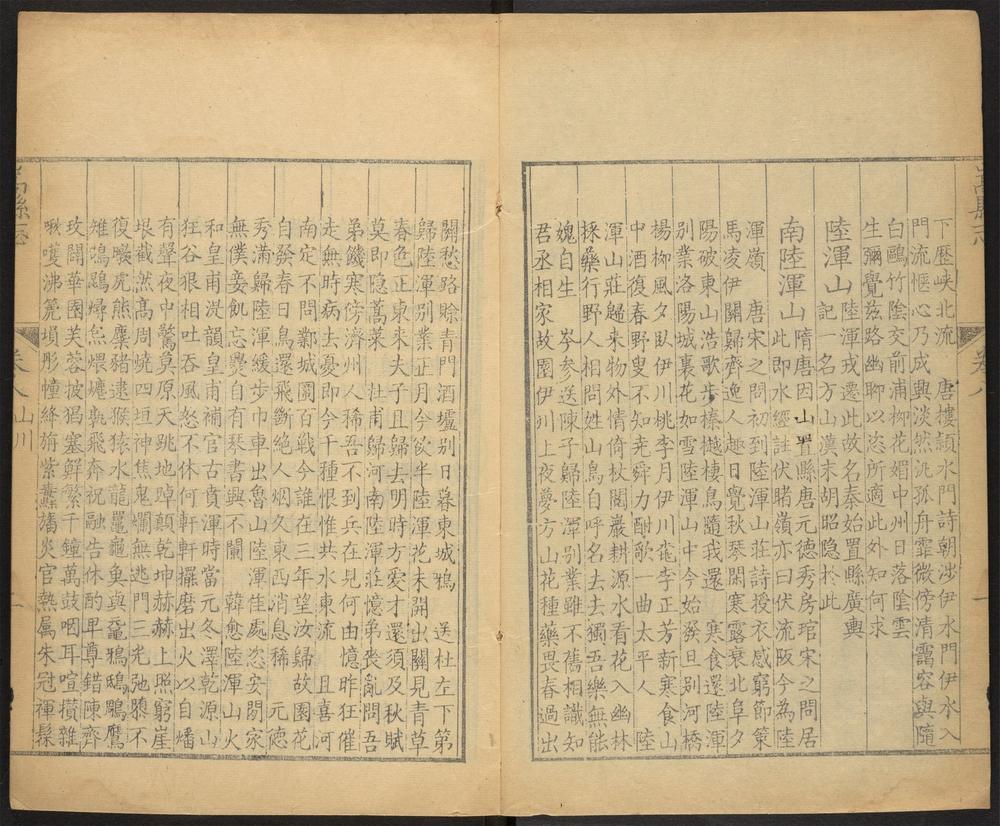 下歷峽北流　唐樓頴水門詩朝涉伊水門伊水入
門流愜心乃成興淡然汎孤舟霏微傍清靄容與隨
白鷗竹陰交前浦柳花媚中州日落陰雲
生彌覺兹路幽聊以恣所適此外知何求
陸渾山陸渾戎遷此故名秦始置縣廣輿
記一名方山漢末胡昭隐於此
南陸渾山隋唐因山置縣唐元德秀房琯宋之問居
此即水經註伏睹嶺亦曰伏流阪今為陸
渾嶺　唐宋之問初到陸渾山莊詩授衣感窮節策
馬凌伊關歸齊逸人趣日覺秋琴閑寒露衰北阜夕
陽破東山浩歌步榛樾棲鳥隨我還　寒食還陸渾
别業洛陽城裏花如雪陸渾山中今始發旦别河橋
楊柳風夕臥伊川桃李月伊川桃李正芳新寒食山
中酒復春野叟不知堯舜力酣歌一曲太平人　陸
渾山莊歸来物外情倚杖閲巖耕源水看花入幽林
採藥行野人相問姓山鳥自呼名去去獨吾樂無能
媿自生　岑參送陳子歸陸渾别業雖不舊相識知
君丞相家故園伊川上夜夢方山花種藥畏春過出
關愁路賒青門酒壚别日暮東城鴉　送杜左下第
歸陸渾别業正月今欲半陸渾花未開出關見青草
春色正東来夫子且歸去明時方愛才還須及秋賦
莫即隐蒿萊　杜甫歸河南陸渾莊憶弟喪亂聞吾
弟饑寒傍濟州人稀吾不到兵在見何由憶昨狂催
走無時病去憂即今千種恨惟共水東流　且喜河
南定不問鄴城圍百戰今誰在三年望汝歸故園花
自發春日鳥還飛斷絶人烟久東西消息稀　元德
秀滿歸陸渾緩步巾車出魯山陸渾佳處恣安閒家
無僕妾飢忘爨自有琴書興不闌　韓愈陸渾山火
和皇甫湜韻皇甫補官古賁渾時當元冬澤乾源山
狂谷狠相吐吞風怒不休何軒軒擺磨出火以自燔
有聲夜中驚莫原天跳地踔顛乾坤赫赫上照窮崖
垠截然高周燒四垣神焦鬼爛無逃門三光弛隳不
復暾虎熊麋豬逮猴猿水龍鼉龜魚與黿鴉鴟鵰鷹
雉鵠鵾燖炰煨爊孰飛奔祝融告休酌卑尊錯陳齊
玫闢華園芙蓉披猖塞鮮繁千鐘萬鼓咽耳喧攢雜
啾嚄沸篪塤彤幢絳旃紫纛旛炎官熱属朱冠褌髹
嵩縣志
卷八山川
一